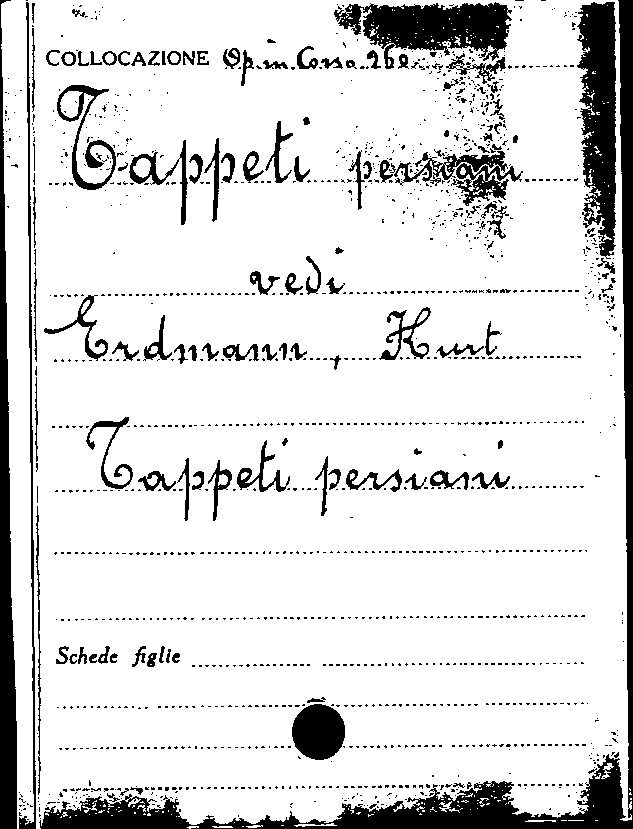 COLLOCAZIONE Op. in Corso 260
Tappeti persiani
vedi
Erdmann, Kurt
Tappeti persiani
Schede figlie